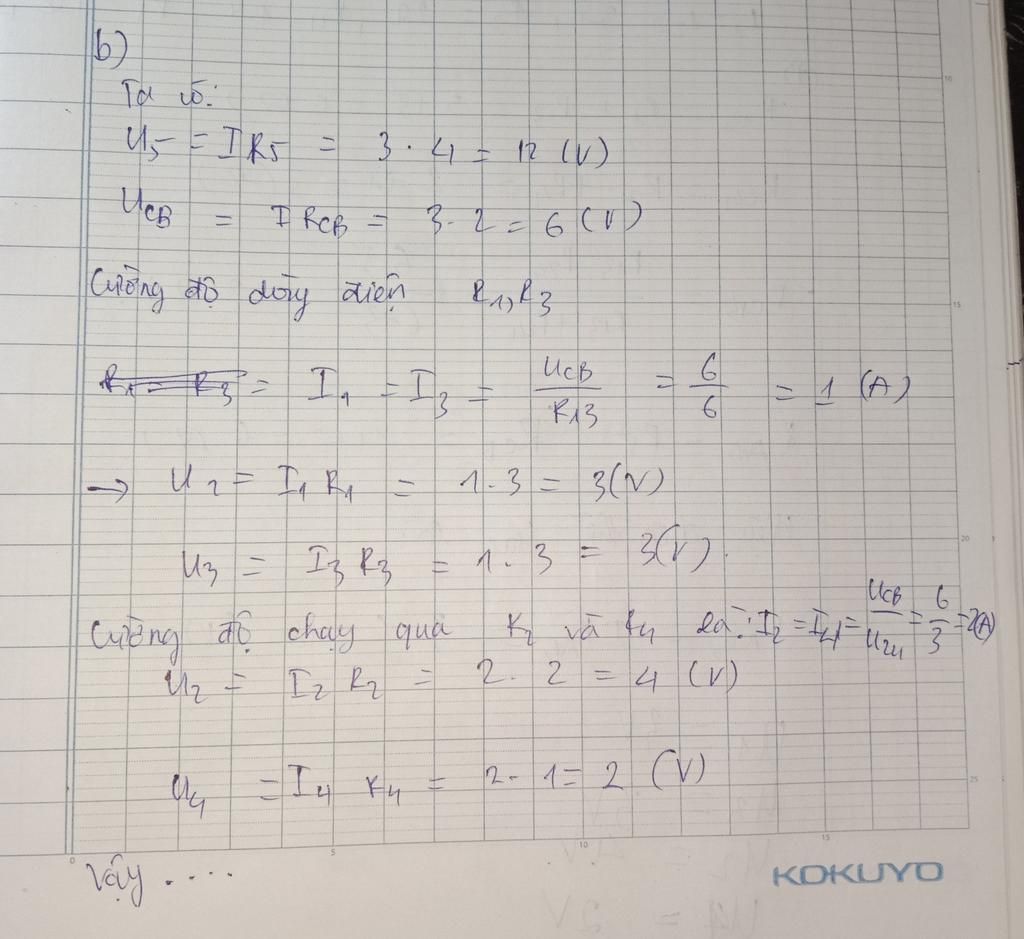 b)
Ta có:
U5 = I R5 = 3 . 4 = 12 (V)
UCB = I RCB = 3 . 2 = 6 (V)
Cường độ dòng điện R1, R3
R1 = R3 = I1 = I3 = UCB / R13 = 6 / 6 = 1 (A)
→ U2 = I1 R1 = 1 . 3 = 3(V)
U3 = I3 R3 = 1 . 3 = 3(V).
Cường độ chạy qua R2 và R4 là: I2 = I4 = UCB / U24 = 6 / 3 = 2(A)
U2 = I2 R2 = 2 . 2 = 4 (V)
U4 = I4 R4 = 2 . 1 = 2 (V)
Vậy ....
KOKUYO
10
15
20
25
0 5 10 15